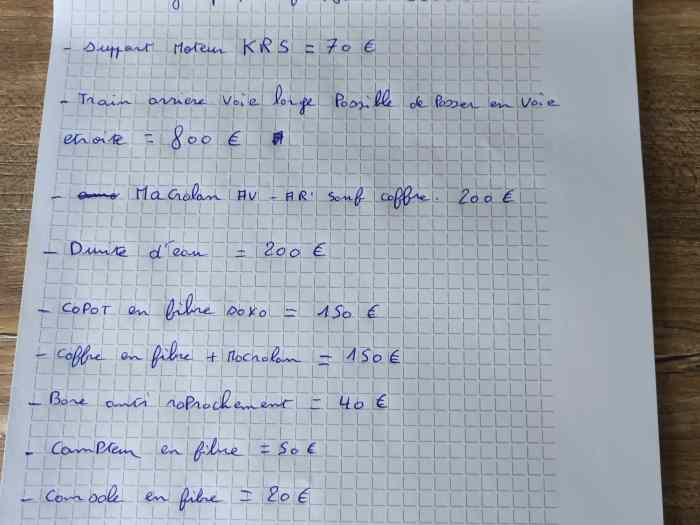 - Support Moteur KRS = 70 €
- Train arriere Voie large Possible de Passer en Voie
etroite = 800 €
- Macrolan AV - AR' sauf coffre. 200 €
- Durite d'eau = 200 €
- CAPOT en fibre = 150 €
- Coffre en fibre + Macrolan = 150 €
- Bare anti raprochement = 40 €
- Compteur en fibre = 50 €
- Console en fibre = 20 €